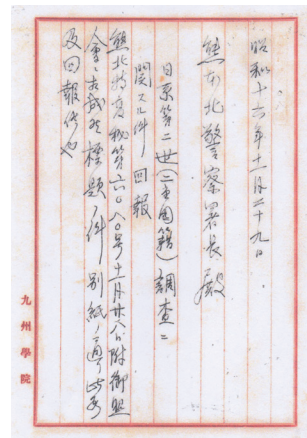 昭和十六年十一月二十九日
熊本北警察署長殿
日系第二世(二重国籍)調査ニ
関スル件回報
熊北特高秘第六〇八〇号十一月廿八日附御照
会ニ相成候標題ノ件別紙ノ通リ
及回報候也
九州學院